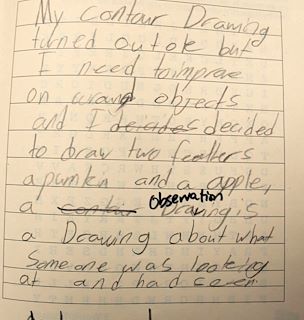 My contour Drawing
turned out ok but
I need to improve
on objects
and I decided
to draw two feathers
a pumkin and a apple,
a observation Drawing is
a Drawing about what
Someone was looking
at and had